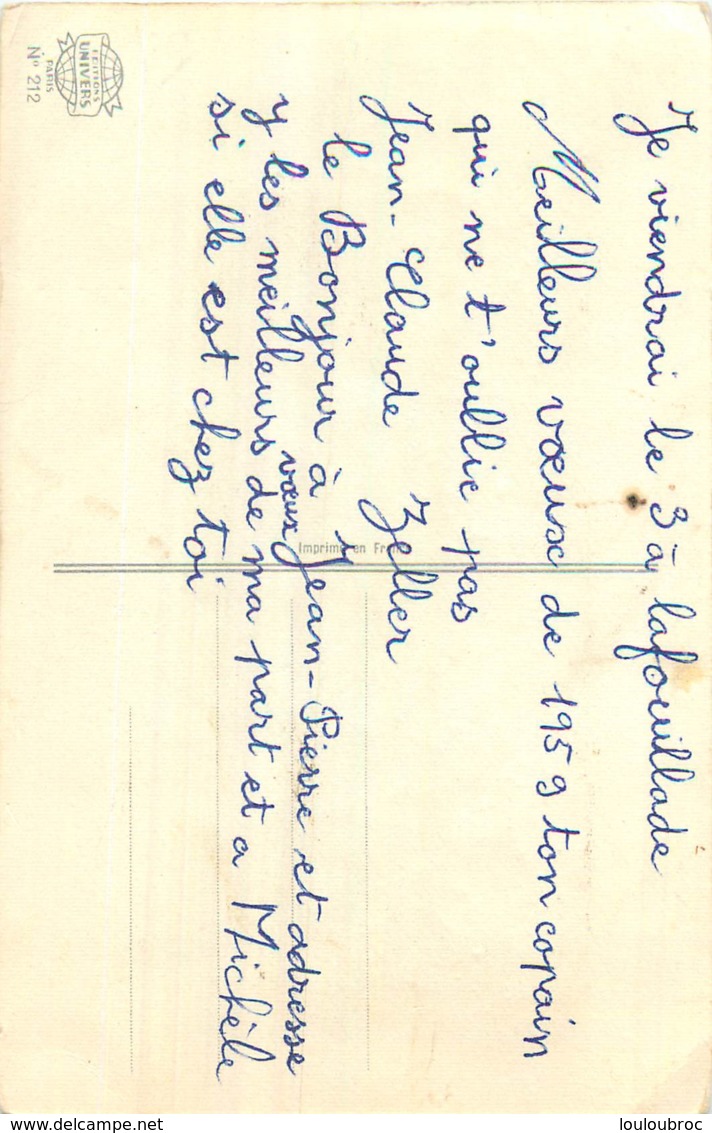 Je viendrai le 3 à lafouillade
Meilleurs vœuse de 1959 ton copain
qui ne t'oublie pas
Jean-Claude Zeller
le Bonjour à Jean-Pierre et adresse
y les meilleurs vœux de ma part et a Michèle
si elle est chez toi
EDITIONS
UNIVERS
PARIS
N° 212
Imprimé en France
louloubroc